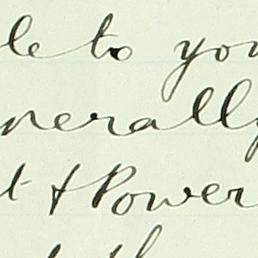 le to you
nerally
t & Power